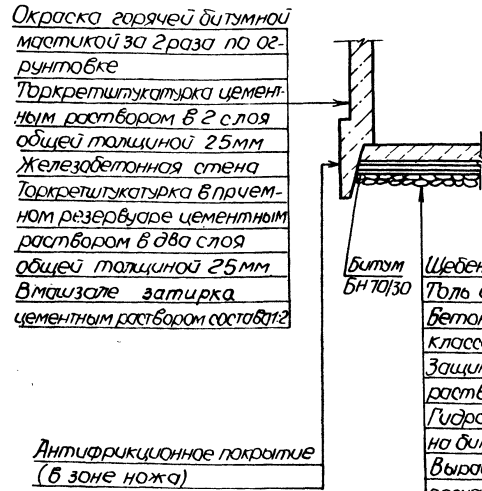 Окраска горячей битумной
мастикой за 2 раза по ог-
рунтовке
Торкретштукатурка цемент-
ным раствором в 2 слоя
общей толщиной 25мм
Железобетонная стена
Торкретштукатурка в прием-
ном резервуаре цементным
раствором в два слоя
общей толщиной 25мм
В машзале затирка
цементным раствором состава 1:2
Битум
БН 70/30
Щебен
Толь
Бетон
класс
Защит
раств
Гидро
на бит
Вырав
Антифрикционное покрытие
(в зоне ножа)